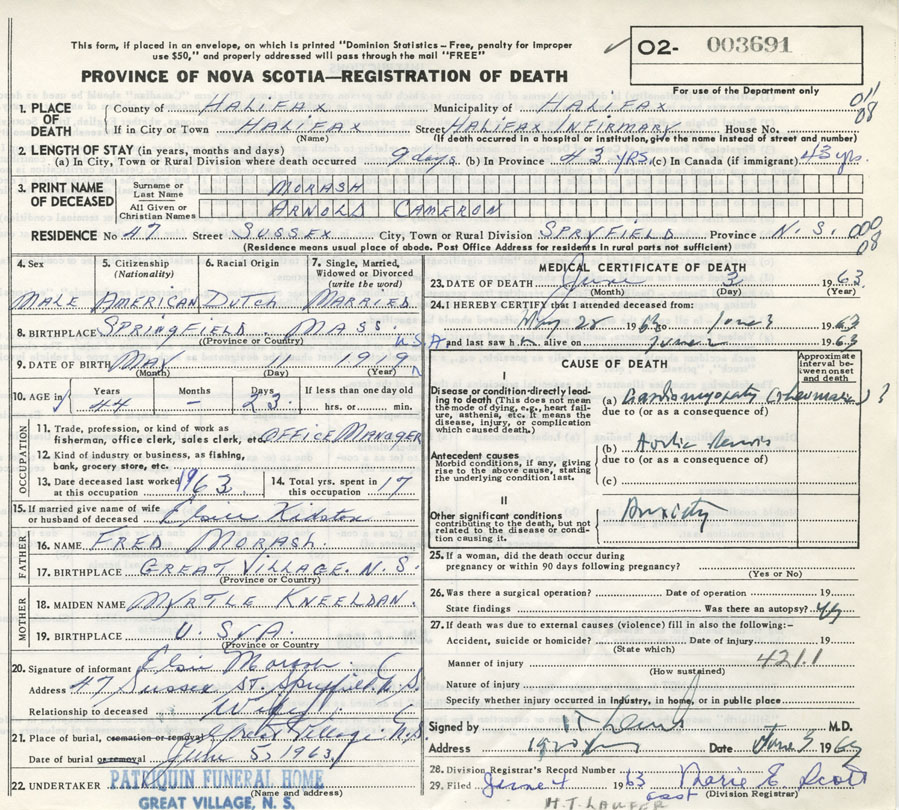 This form, if placed in an envelope, on which is printed "Dominion Statistics – Free, penalty for improper
use $50," and properly addressed will pass through the mail "FREE"
✓ O2- 003691
For use of the Department only
PROVINCE OF NOVA SCOTIA—REGISTRATION OF DEATH
011
08
1. PLACE OF DEATH County of HALIFAX Municipality of HALIFAX
If in City or Town HALIFAX Street HALIFAX INFIRMARY House No.
(Name) (If death occurred in a hospital or institution, give the name instead of street and number)
2. LENGTH OF STAY (in years, months and days)
(a) In City, Town or Rural Division where death occurred 9 days (b) In Province 43 YRS. (c) In Canada (if immigrant) 43 yrs.
3. PRINT NAME OF DECEASED Surname or Last Name MORASH
All Given or Christian Names ARNOLD CAMERON
RESIDENCE No 47 Street SUSSEX City, Town or Rural Division SPRYFIELD Province N.S. 000
08
(Residence means usual place of abode. Post Office Address for residents in rural parts not sufficient)
4. Sex 5. Citizenship (Nationality) 6. Racial Origin 7. Single, Married, Widowed or Divorced (write the word)
MALE AMERICAN DUTCH MARRIED
8. BIRTHPLACE SPRINGFIELD. MASS. U.S.A
(Province or Country)
9. DATE OF BIRTH MAY 11 1919
(Month) (Day) (Year)
10. AGE in Years Months Days If less than one day old
44 – 23 hrs. or min.
OCCUPATION
11. Trade, profession, or kind of work as
fisherman, office clerk, sales clerk, etc. OFFICE MANAGER
12. Kind of industry or business, as fishing,
bank, grocery store, etc.
13. Date deceased last worked at this occupation 1963 14. Total yrs. spent in this occupation 17
15. If married give name of wife
or husband of deceased Elsie Kidston
FATHER
16. NAME FRED MORASH.
17. BIRTHPLACE GREAT VILLAGE. N.S.
(Province or Country)
MOTHER
18. MAIDEN NAME MYRTLE KNEELDAN.
19. BIRTHPLACE U.S.A.
(Province or Country)
20. Signature of informant Elsie Morash
Address 47 Sussex St. Spryfield N.S.
Relationship to deceased Wife
21. Place of burial, cremation or removal Great Village N.S.
Date of burial or removal June 5, 1963
22. UNDERTAKER PATRIQUIN FUNERAL HOME
(Name and address)
GREAT VILLAGE, N. S.
MEDICAL CERTIFICATE OF DEATH
23. DATE OF DEATH June 3 1963
(Month) (Day) (Year)
24. I HEREBY CERTIFY that I attended deceased from:
May 22 1963 to June 3 1963
and last saw h alive on June 2 1963
CAUSE OF DEATH
Approximate interval between onset and death
I
Disease or condition directly leading
to death (This does not mean
the mode of dying, e.g., heart failure,
asthenia, etc. It means the
disease, injury, or complication
which caused death.)
(a) Cardiomyopathy (rheumatic) ?
due to (or as a consequence of)
Antecedent causes
Morbid conditions, if any, giving
rise to the above cause, stating
the underlying condition last.
(b) Aortic
due to (or as a consequence of)
(c)
II
Other significant conditions
contributing to the death, but not
related to the disease or condition
causing it.
Anxiety
25. If a woman, did the death occur during
pregnancy or within 90 days following pregnancy?
(Yes or No)
26. Was there a surgical operation? Date of operation 19
State findings Was there an autopsy?
27. If death was due to external causes (violence) fill in also the following:–
Accident, suicide or homicide? Date of injury 19
(State which)
Manner of injury 421.1
(How sustained)
Nature of injury
Specify whether injury occurred in industry, in home, or in public place
Signed by M.D.
Address Date June 19
28. Division Registrar's Record Number
29. Filed June 4 1963 Marie E. Scott
(Division Registrar)
H.T. LAWFER